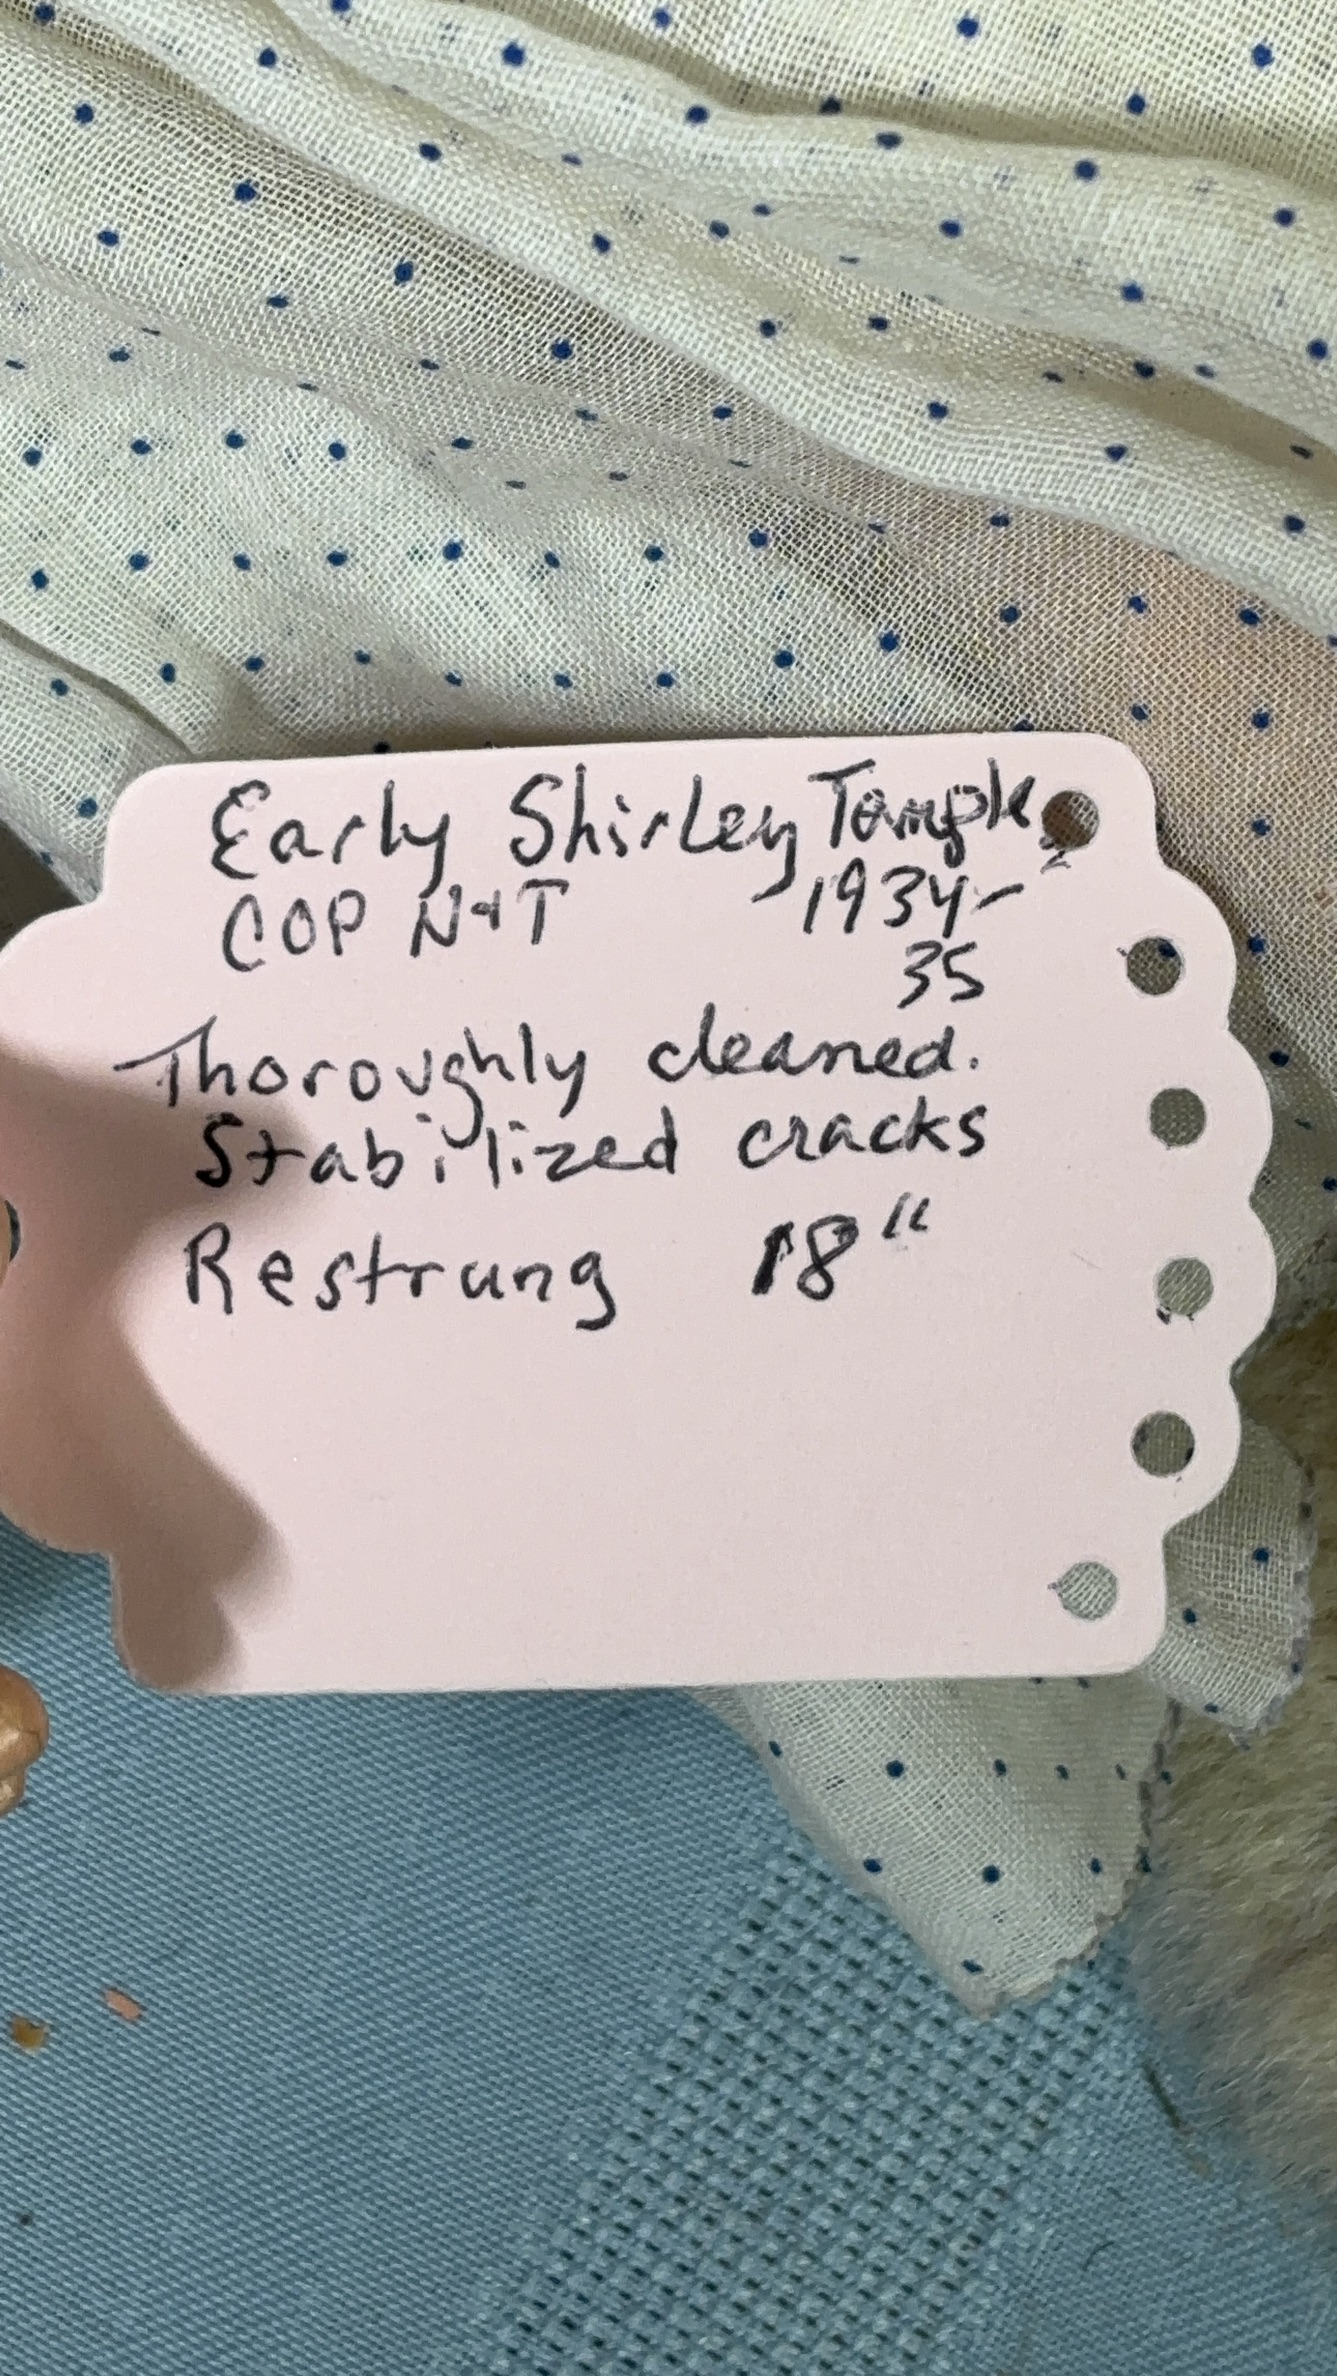 Early Shirley Temple
COP N+T 1934-
35
Thoroughly cleaned.
Stabilized cracks
Restrung 18"